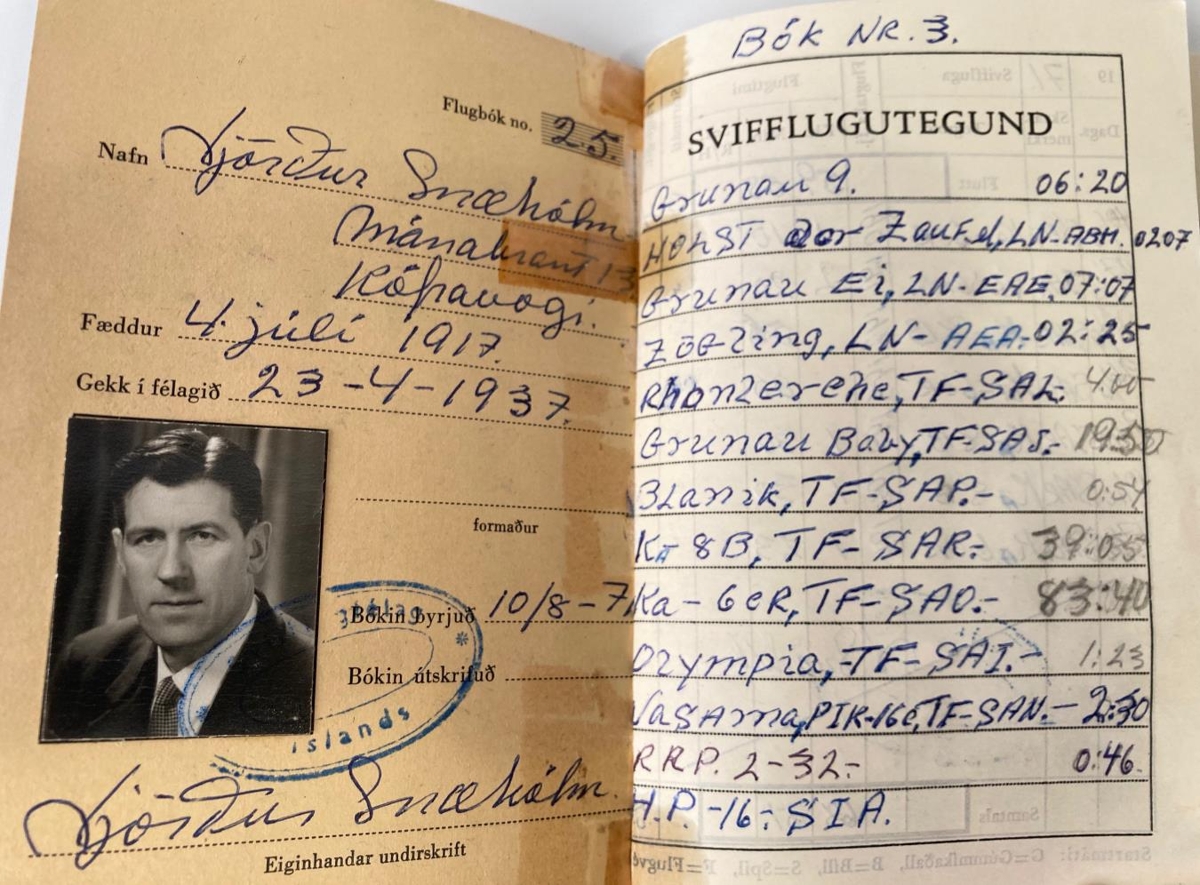 Flugbók no. 25.
Nafn Njörður Snæhólm
Mánabraut 13
Kópavogi.
Fæddur 4. júlí 1917.
Gekk í félagið 23-4-1937.
formaður
Bókin byrjuð 10/8-7
Bókin útskrifuð
íslands
Njörður Snæhólm.
Eiginhandar undirskrift
BÓK NR. 3.
SVIFFLUGUTEGUND
Grunau 9. 06:20
HOLST der Zaufel, LN-ABH. 0207
Grunau Ei, LN-EAE, 07:07
Zögling, LN-AEA. 02:25
Rhonlerche, TF-SAL.
Grunau Baby, TF-SAJ.-
BLanik, TF-SAP.- 0:54
Ka 8B, TF-SAR.- 39:05
Ka-6CR, TF-SAO.- 83:40
Olympia, TF-SAI.- 1:23
Vasama, PIK-16C, TF-SAN.- 2:30
R R P. 2-32.- 0:46.
H.P.-16-: S I A.